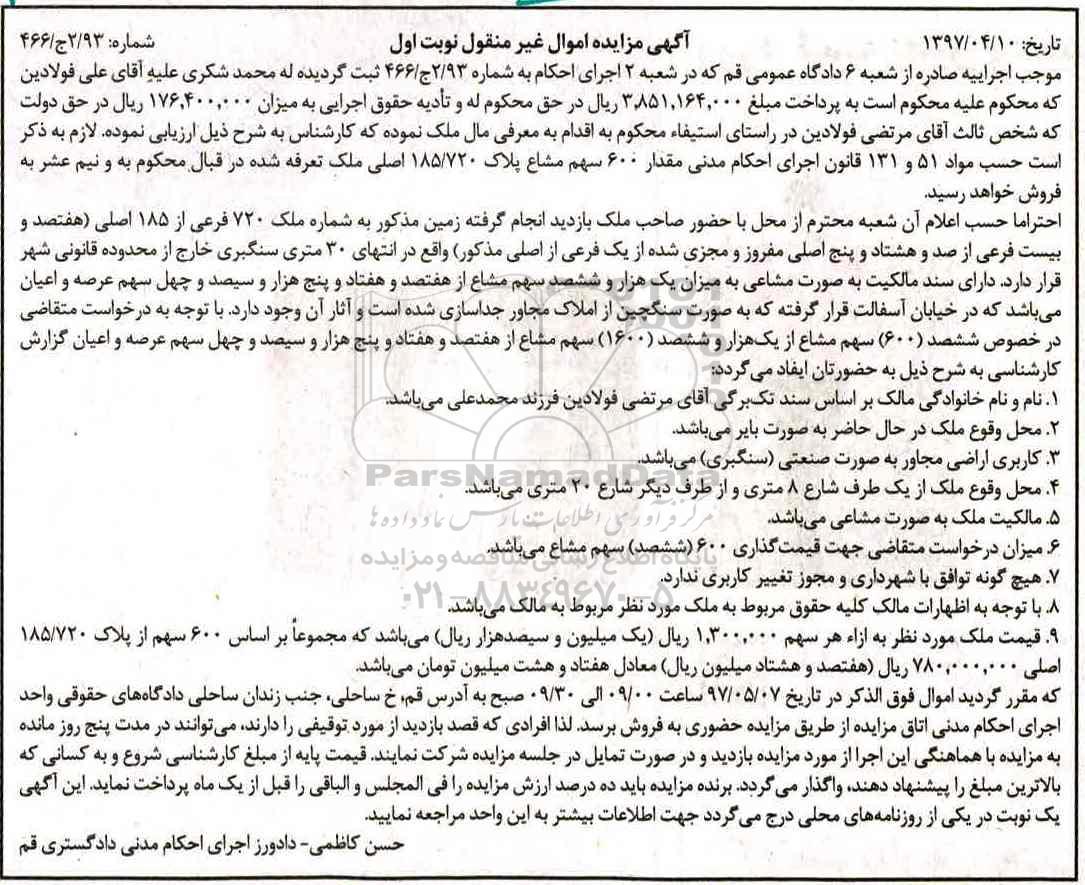 تاریخ: ۱۳۹۷/۰۴/۱۰ آگهی مزایده اموال غیر منقول نوبت اول شماره: ۲/۹۳ج/۴۶۶
موجب اجراییه صادره از شعبه ۶ دادگاه عمومی قم که در شعبه ۲ اجرای احکام به شماره ۲/۹۳ج/۴۶۶ ثبت گردیده له محمد شکری علیه آقای علی فولادین
که محکوم علیه محکوم است به پرداخت مبلغ ۳,۸۵۱,۱۶۴,۰۰۰ ریال در حق محکوم له و تأدیه حقوق اجرایی به میزان ۱۷۶,۴۰۰,۰۰۰ ریال در حق دولت
که شخص ثالث آقای مرتضی فولادین در راستای استیفاء محکوم به اقدام به معرفی مال ملک نموده که کارشناس به شرح ذیل ارزیابی نموده. لازم به ذکر
است حسب مواد ۵۱ و ۱۳۱ قانون اجرای احکام مدنی مقدار ۶۰۰ سهم مشاع پلاک ۱۸۵/۷۲۰ اصلی ملک تعرفه شده در قبال محکوم به و نیم عشر به
فروش خواهد رسید.
احتراما حسب اعلام آن شعبه محترم از محل با حضور صاحب ملک بازدید انجام گرفته زمین مذکور به شماره ملک ۷۲۰ فرعی از ۱۸۵ اصلی (هفتصد و
بیست فرعی از صد و هشتاد و پنج اصلی مفروز و مجزی شده از یک فرعی از اصلی مذکور) واقع در انتهای ۳۰ متری سنگبری خارج از محدوده قانونی شهر
قرار دارد. دارای سند مالکیت به صورت مشاعی به میزان یک هزار و ششصد سهم مشاع از هفتصد و هفتاد و پنج هزار و سیصد و چهل سهم عرصه و اعیان
می‌باشد که در خیابان آسفالت قرار گرفته که به صورت سنگچین از املاک مجاور جداسازی شده است و آثار آن وجود دارد. با توجه به درخواست متقاضی
در خصوص ششصد (۶۰۰) سهم مشاع از یک‌هزار و ششصد (۱۶۰۰) سهم مشاع از هفتصد و هفتاد و پنج هزار و سیصد و چهل سهم عرصه و اعیان گزارش
کارشناسی به شرح ذیل به حضورتان ایفاد می‌گردد:
۱. نام و نام خانوادگی مالک بر اساس سند تک‌برگی آقای مرتضی فولادین فرزند محمدعلی می‌باشد.
۲. محل وقوع ملک در حال حاضر به صورت بایر می‌باشد.
۳. کاربری اراضی مجاور به صورت صنعتی (سنگبری) می‌باشد.
ParsNamadData
۴. محل وقوع ملک از یک طرف شارع ۸ متری و از طرف دیگر شارع ۲۰ متری می‌باشد.
مرکز فرآوری اطلاعات پارس نماد داده‌ها
۵. مالکیت ملک به صورت مشاعی می‌باشد.
۶. میزان درخواست متقاضی جهت قیمت‌گذاری ۶۰۰ (ششصد) سهم مشاع می‌باشد.
پایگاه اطلاع رسانی مناقصه و مزایده
۷. هیچ گونه توافق با شهرداری و مجوز تغییر کاربری ندارد.
۰۲۱-۸۸۳۴۹۶۷۰-۵
۸. با توجه به اظهارات مالک کلیه حقوق مربوط به ملک مورد نظر مربوط به مالک می‌باشد.
۹. قیمت ملک مورد نظر به ازاء هر سهم ۱,۳۰۰,۰۰۰ ریال (یک میلیون و سیصدهزار ریال) می‌باشد که مجموعاً بر اساس ۶۰۰ سهم از پلاک ۱۸۵/۷۲۰
اصلی ۷۸۰,۰۰۰,۰۰۰ ریال (هفتصد و هشتاد میلیون ریال) معادل هفتاد و هشت میلیون تومان می‌باشد.
که مقرر گردید اموال فوق الذکر در تاریخ ۹۷/۰۵/۰۷ ساعت ۰۹/۰۰ الی ۰۹/۳۰ صبح به آدرس قم، خ ساحلی، جنب زندان ساحلی دادگاه‌های حقوقی واحد
اجرای احکام مدنی اتاق مزایده از طریق مزایده حضوری به فروش برسد. لذا افرادی که قصد بازدید از مورد توقیفی را دارند، می‌توانند در مدت پنج روز مانده
به مزایده با هماهنگی این اجرا از مورد مزایده بازدید و در صورت تمایل در جلسه مزایده شرکت نمایند. قیمت پایه از مبلغ کارشناسی شروع و به کسانی که
بالاترین مبلغ را پیشنهاد دهند، واگذار می‌گردد. برنده مزایده باید ده درصد ارزش مزایده را فی المجلس و الباقی را قبل از یک ماه پرداخت نماید. این آگهی
یک نوبت در یکی از روزنامه‌های محلی درج می‌گردد جهت اطلاعات بیشتر به این واحد مراجعه نمایید.
حسن کاظمی- دادورز اجرای احکام مدنی دادگستری قم